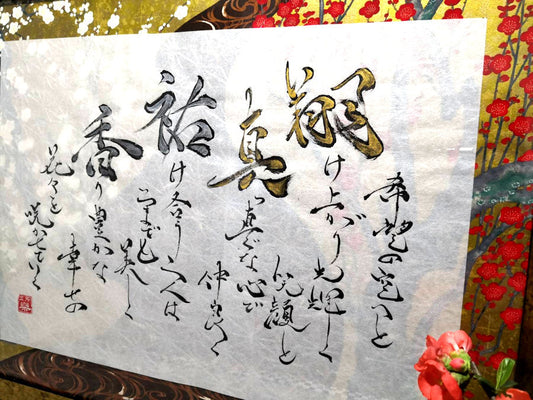 希望の空へと
翔け上がり光輝く
笑顔と
真っ直ぐな心で
仲良く
祐け合う二人は
いつまでも美しく
香り豊かな
幸せの
花々を
咲かせていく